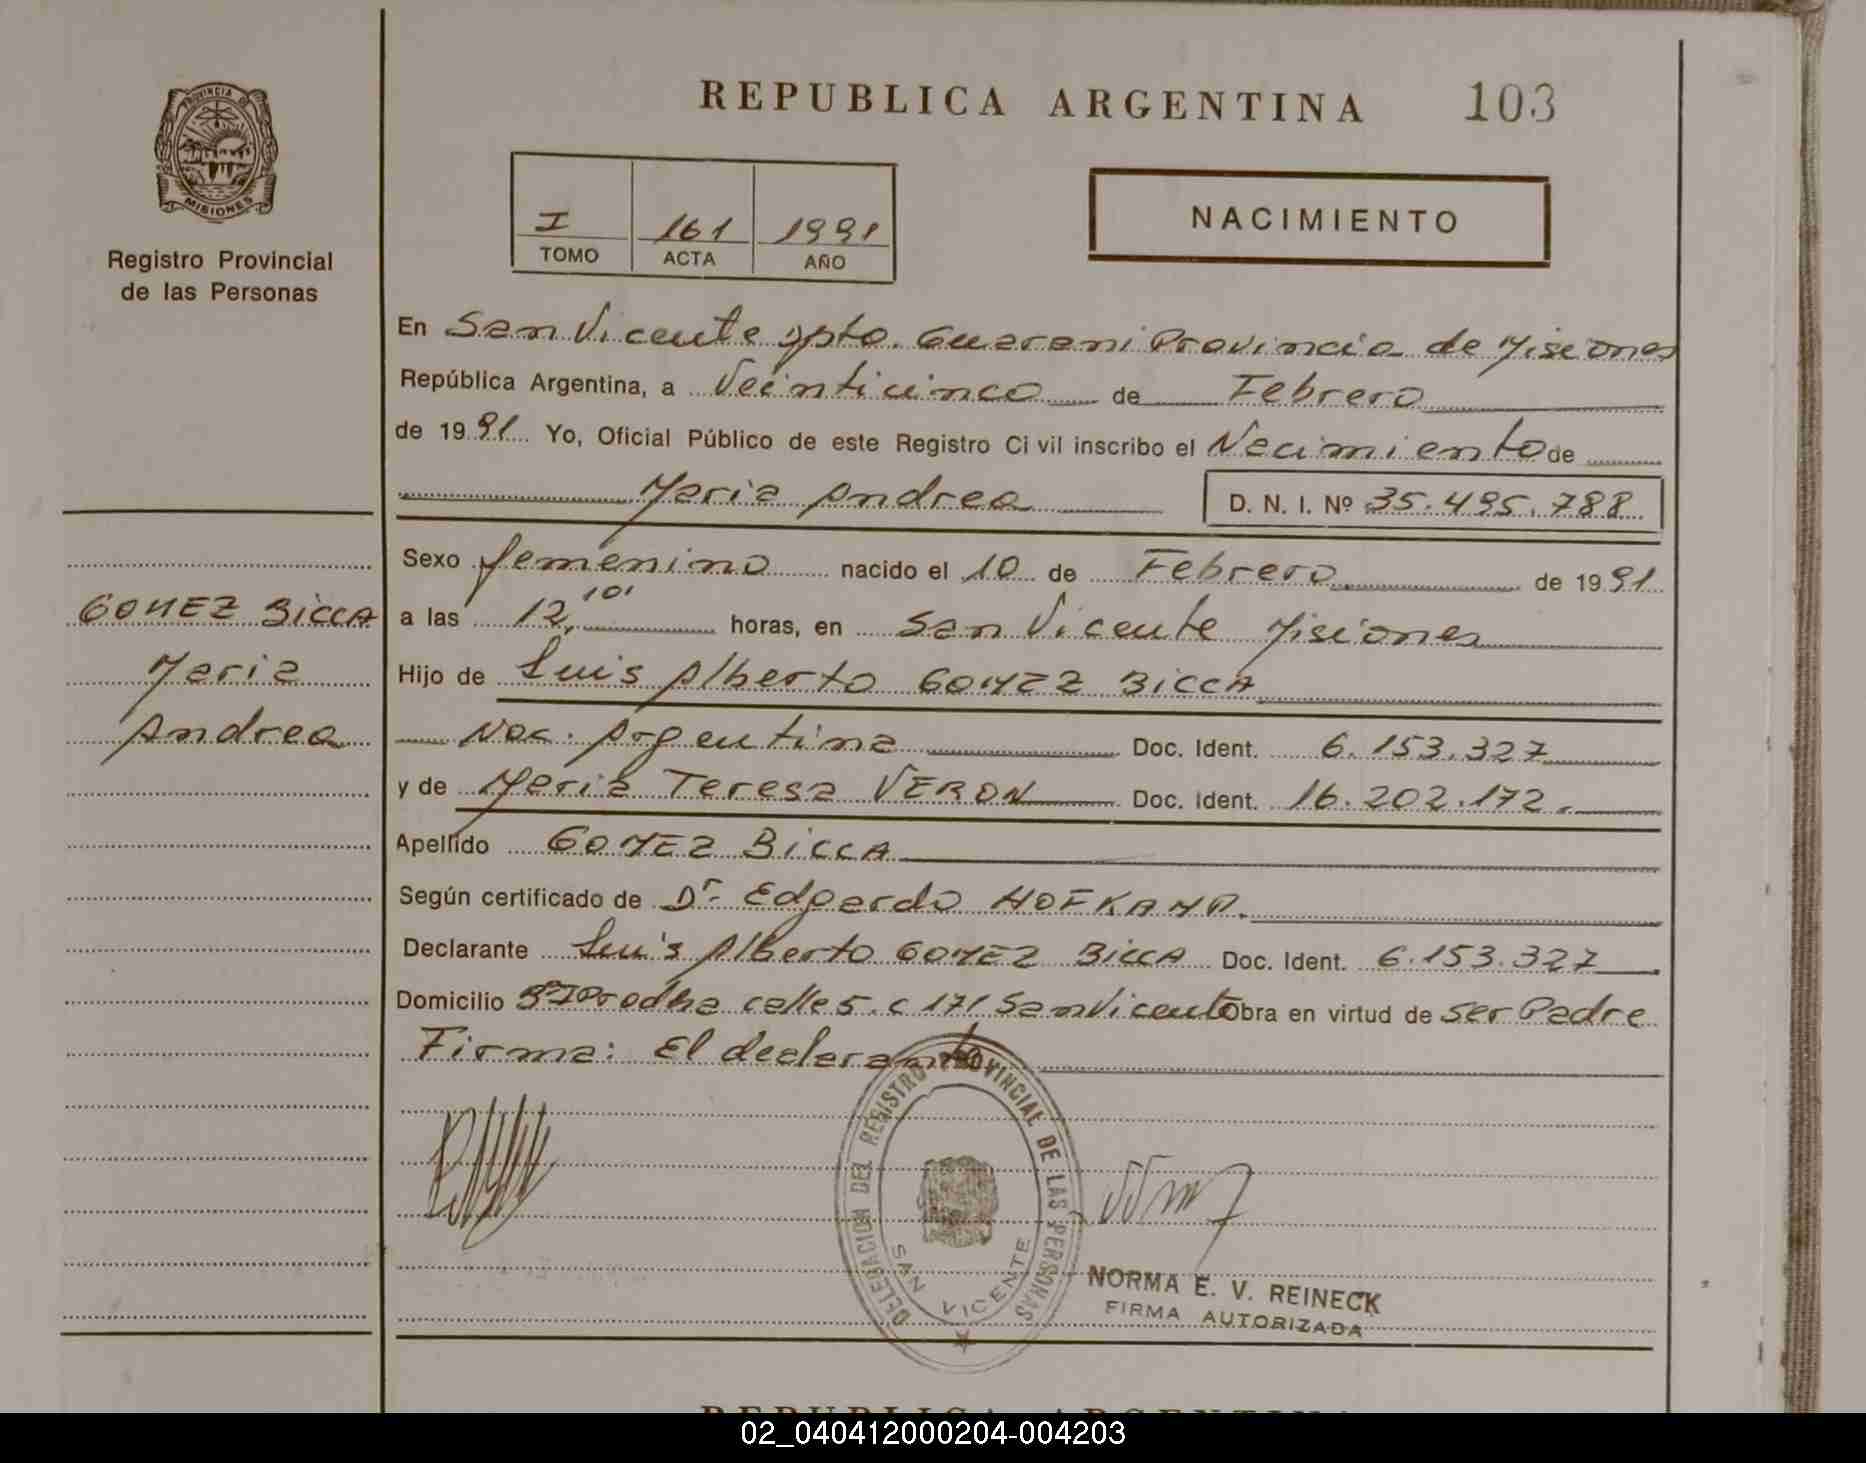 REPUBLICA ARGENTINA 103
PROVINCIA DE
MISIONES
Registro Provincial
de las Personas
I 161 1991
TOMO ACTA AÑO
NACIMIENTO
En San Vicente Dpto. Guarani Provincia de Misiones
República Argentina, a Veinticinco de Febrero
de 1991 Yo, Oficial Público de este Registro Civil inscribo el Nacimiento de
Maria Andrea D. N. I. Nº 35.495.788
Sexo femenino nacido el 10 de Febrero de 1991
a las 12,10' horas, en San Vicente Misiones
Hijo de Luis Alberto GOMEZ BICCA
Nac. Argentina Doc. Ident. 6.153.327
y de Maria Teresa VERON Doc. Ident. 16.202.172.
Apellido GOMEZ BICCA
Según certificado de Dr. Edgardo HOFKAMP.
Declarante Luis Alberto GOMEZ BICCA Doc. Ident. 6.153.327
Domicilio calle 5. c 171 San Vicente Obra en virtud de ser Padre
Firma: El declarante
GOMEZ BICCA
Maria
Andrea
DELEGACION DEL REGISTRO PROVINCIAL DE LAS PERSONAS
SAN VICENTE
NORMA E. V. REINECK
FIRMA AUTORIZADA
REPUBLICA ARGENTINA
02_040412000204-004203